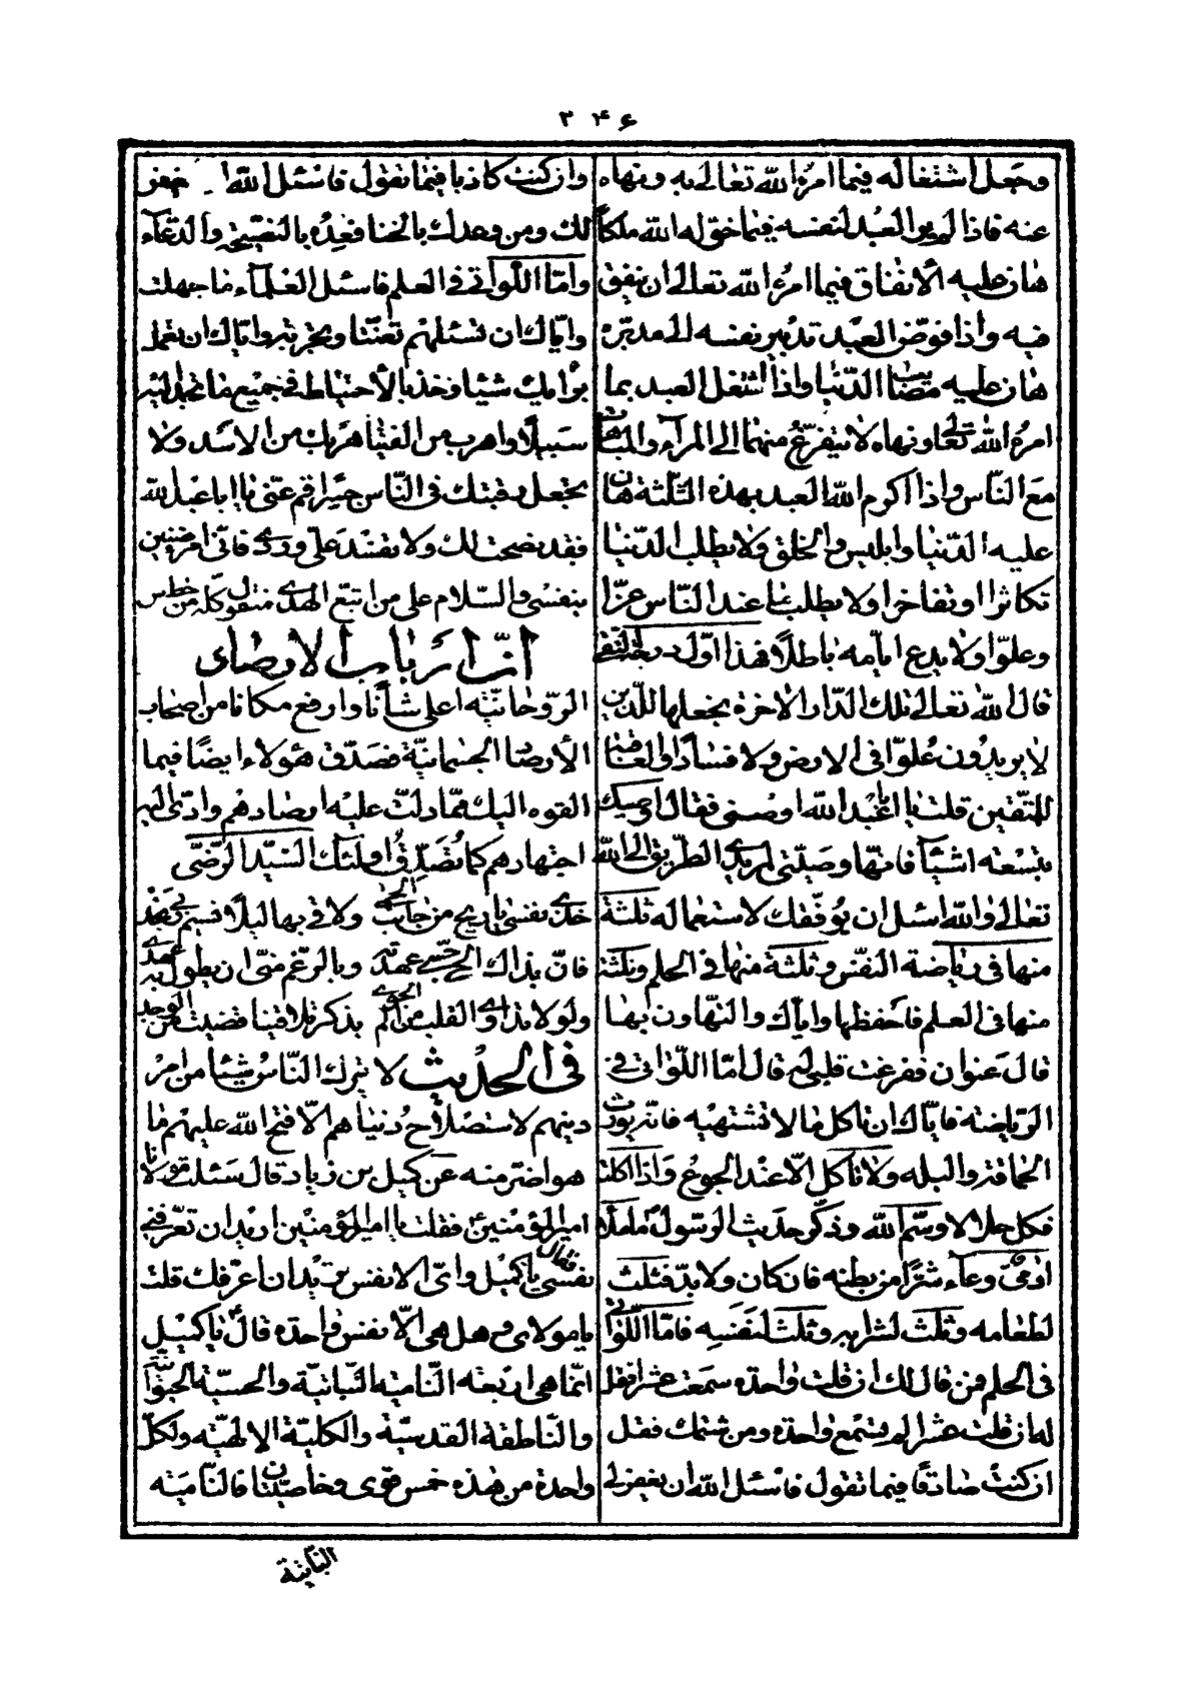 ۲۴۶
وجعل اشتغاله فيما امره الله تعالى به ونهاه
عنه فاذا لم ير العبد لنفسه فيما خوّله الله ملكاً
هان عليه الانفاق فيما امره الله تعالى ان ينفق
فيه واذا فوّض العبد تدبير نفسه الى مدبّره
هان عليه مصائب الدّنيا واذا اشتغل العبد بما
امره الله تعالى ونهاه لا يتفرّغ منهما الى المرآء والمباهاة
مع النّاس واذا اكرم الله العبد بهذه الثّلثة هان
عليه الدّنيا وابليس والخلق ولا يطلب الدّنيا
تكاثرا وتفاخرا ولا يطلب ما عند النّاس عزّا
وعلوّا ولا يدع ايّامه باطلاً فهذا اوّل درجة التقى
قال الله تعالى تلك الدّار الاخرة نجعلها للّذين
لا يريدون علوّا فى الارض ولا فسادًا والعاقبة
للمتّقين قلت يا ابا عبد الله اوصنى فقال اوصيك
بتسعة اشيآء فانّها وصيّتى لمريدى الطّريق الى الله
تعالى والله اسئل ان يوفّقك لاستعماله ثلثة
منها فى رياضة النّفس وثلثة منها فى الحلم وثلثة
منها فى العلم فاحفظها وايّاك والتّهاون بها
قال عنوان ففرغت قلبى له قال امّا اللّواتى فى
الرّياضة فايّاك ان تاكل ما لا تشتهيه فانّه يورث
الحماقة والبله ولا تاكل الّا عند الجوع واذا اكلت
فكل حلالا وسمّ الله وذكّر حديث الرّسول ص ما ملأ
ادمىّ وعآء شرًّا من بطنه فان كان ولا بدّ فثلث
لطعامه وثلث لشرابه وثلث لنفسه فامّا اللّواتى
فى الحلم فمن قال لك ان قلت واحدة سمعت عشرا فقل
له ان قلت عشرا لم تسمع واحدة ومن شتمك فقل
ان كنت صادقًا فيما تقول فاسئل الله ان يغفر لى
وان كنت كاذبا فيما تقول فاسئل الله ان يغفر
لك ومن وعدك بالخنا فعِدْه بالنّصيحة والدّعآء
وامّا اللّواتى فى العلم فاسئل العلمآء ما جهلت
وايّاك ان تسئلهم تعنّتا وتجربة وايّاك ان تعمل
برأيك شيئا وخذ بالاحتياط فى جميع ما تجد اليه
سبيلا واهرب من الفتيا هربك من الاسد ولا
تجعل رقبتك فى النّاس جسرا قم عنّى يا ابا عبد الله
فقد نصحت لك ولا تفسد علىّ وردى فانّى امرء ضنين
بنفسى والسّلام على من اتّبع الهدى منقول كلّه من خط س
انّ ارباب الارصاد
الرّوحانيّة اعلى شأنا وارفع مكانا من اصحاب
الأرصاد الجسمانيّة فصدّق هؤلاء ايضًا فيما
القوه اليك ممّا دلّت عليه ارصادهم وادّى اليه
اجتهادهم كما تصدّق اولئك السّيّد الرّضىّ
خذى نفسى يا ريح من جانب الحمى ولاقى بها ليلًا نسيم ربى نجد
فانّ بذاك الحىّ حبّى عهدته وبالرّغم منّى ان يطول به عهدى
ولولا تداوى القلب من الم الجوى بذكر تلاقينا قضيت من الوجد
فى الحديث لا يترك النّاس شيئا من امر
دينهم لاستصلاح دنياهم الّا فتح الله عليهم ما
هو اضرّ منه عن كميل بن زياد قال سئلت مولانا
امير المؤمنين ع فقلت يا امير المؤمنين اريد ان تعرّفنى
نفسى فقال يا كميل واىّ الانفس تريد ان اعرّفك قلت
يا مولاى وهل هى الّا نفس واحدة قال يا كميل
انّما هى اربعة النّامية النّباتيّة والحسّيّة الحيوانيّة
والنّاطقة القدسيّة والكليّة الالهيّة ولكلّ
واحدة من هذه خمس قوى وخاصيّتان فالنّامية
النّباتيّة